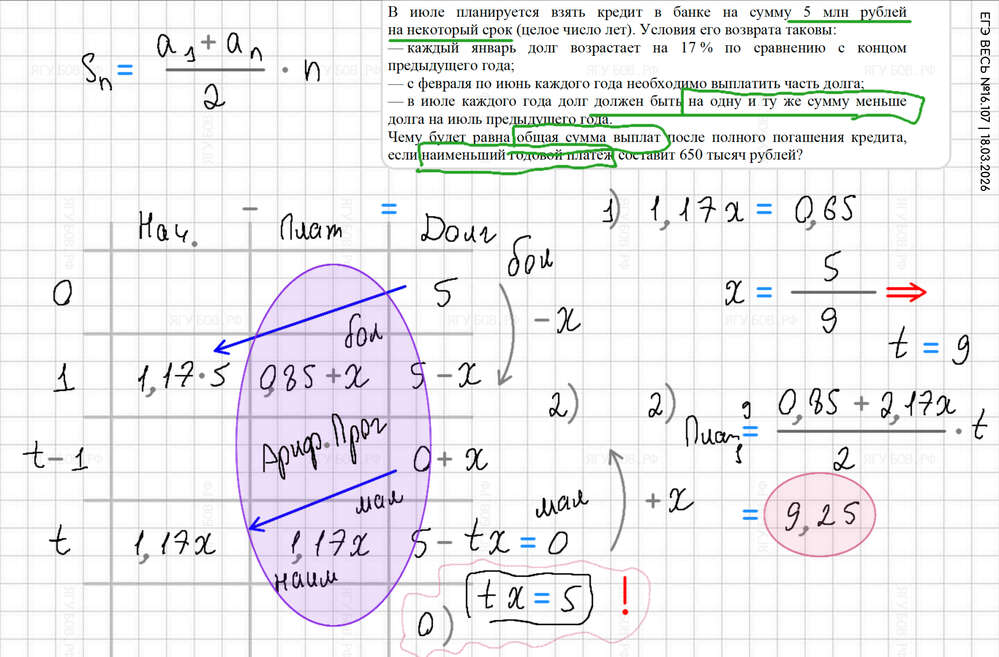 В июле планируется взять кредит в банке на сумму 5 млн рублей
на некоторый срок (целое число лет). Условия его возврата таковы:
— каждый январь долг возрастает на 17 % по сравнению с концом
предыдущего года;
— с февраля по июнь каждого года необходимо выплатить часть долга;
— в июле каждого года долг должен быть на одну и ту же сумму меньше
долга на июль предыдущего года.
Чему будет равна общая сумма выплат после полного погашения кредита,
если наименьший годовой платёж составит 650 тысяч рублей?
ЕГЭ ВЕСЬ №16.107 | 18.03.2026
Sn = (a1 + an)/2 · n
Нач. − Плат = Долг
0 5
бол
− x
бол
1 1,17·5 0,85 + x 5 − x
Ариф.Прог
t−1 0 + x
мал
мал
+ x
t 1,17x 1,17x 5 − tx = 0
наим
0) tx = 5 !
1) 1,17x = 0,65
x = 5/9 ⇒
t = 9
2)
2) Плат 9 1 = (0,85 + 2,17x)/2 · t
= 9,25